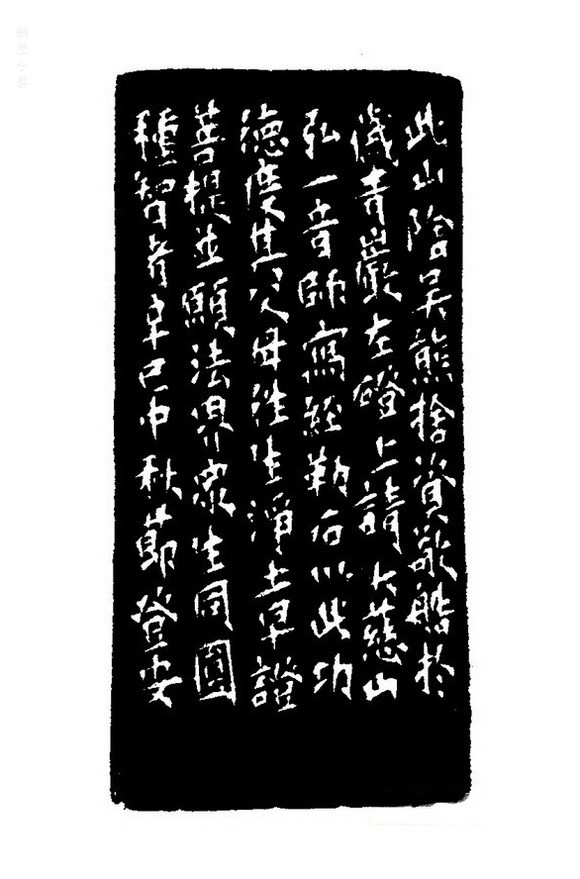 此山陰吳熊捨資敬艁於
青巖左磴上請大慈山
弘一音師寫經勒石以此功
德度其父母往生淨土早證
菩提並願法界眾生同圓
種智者辛巳中秋節登安